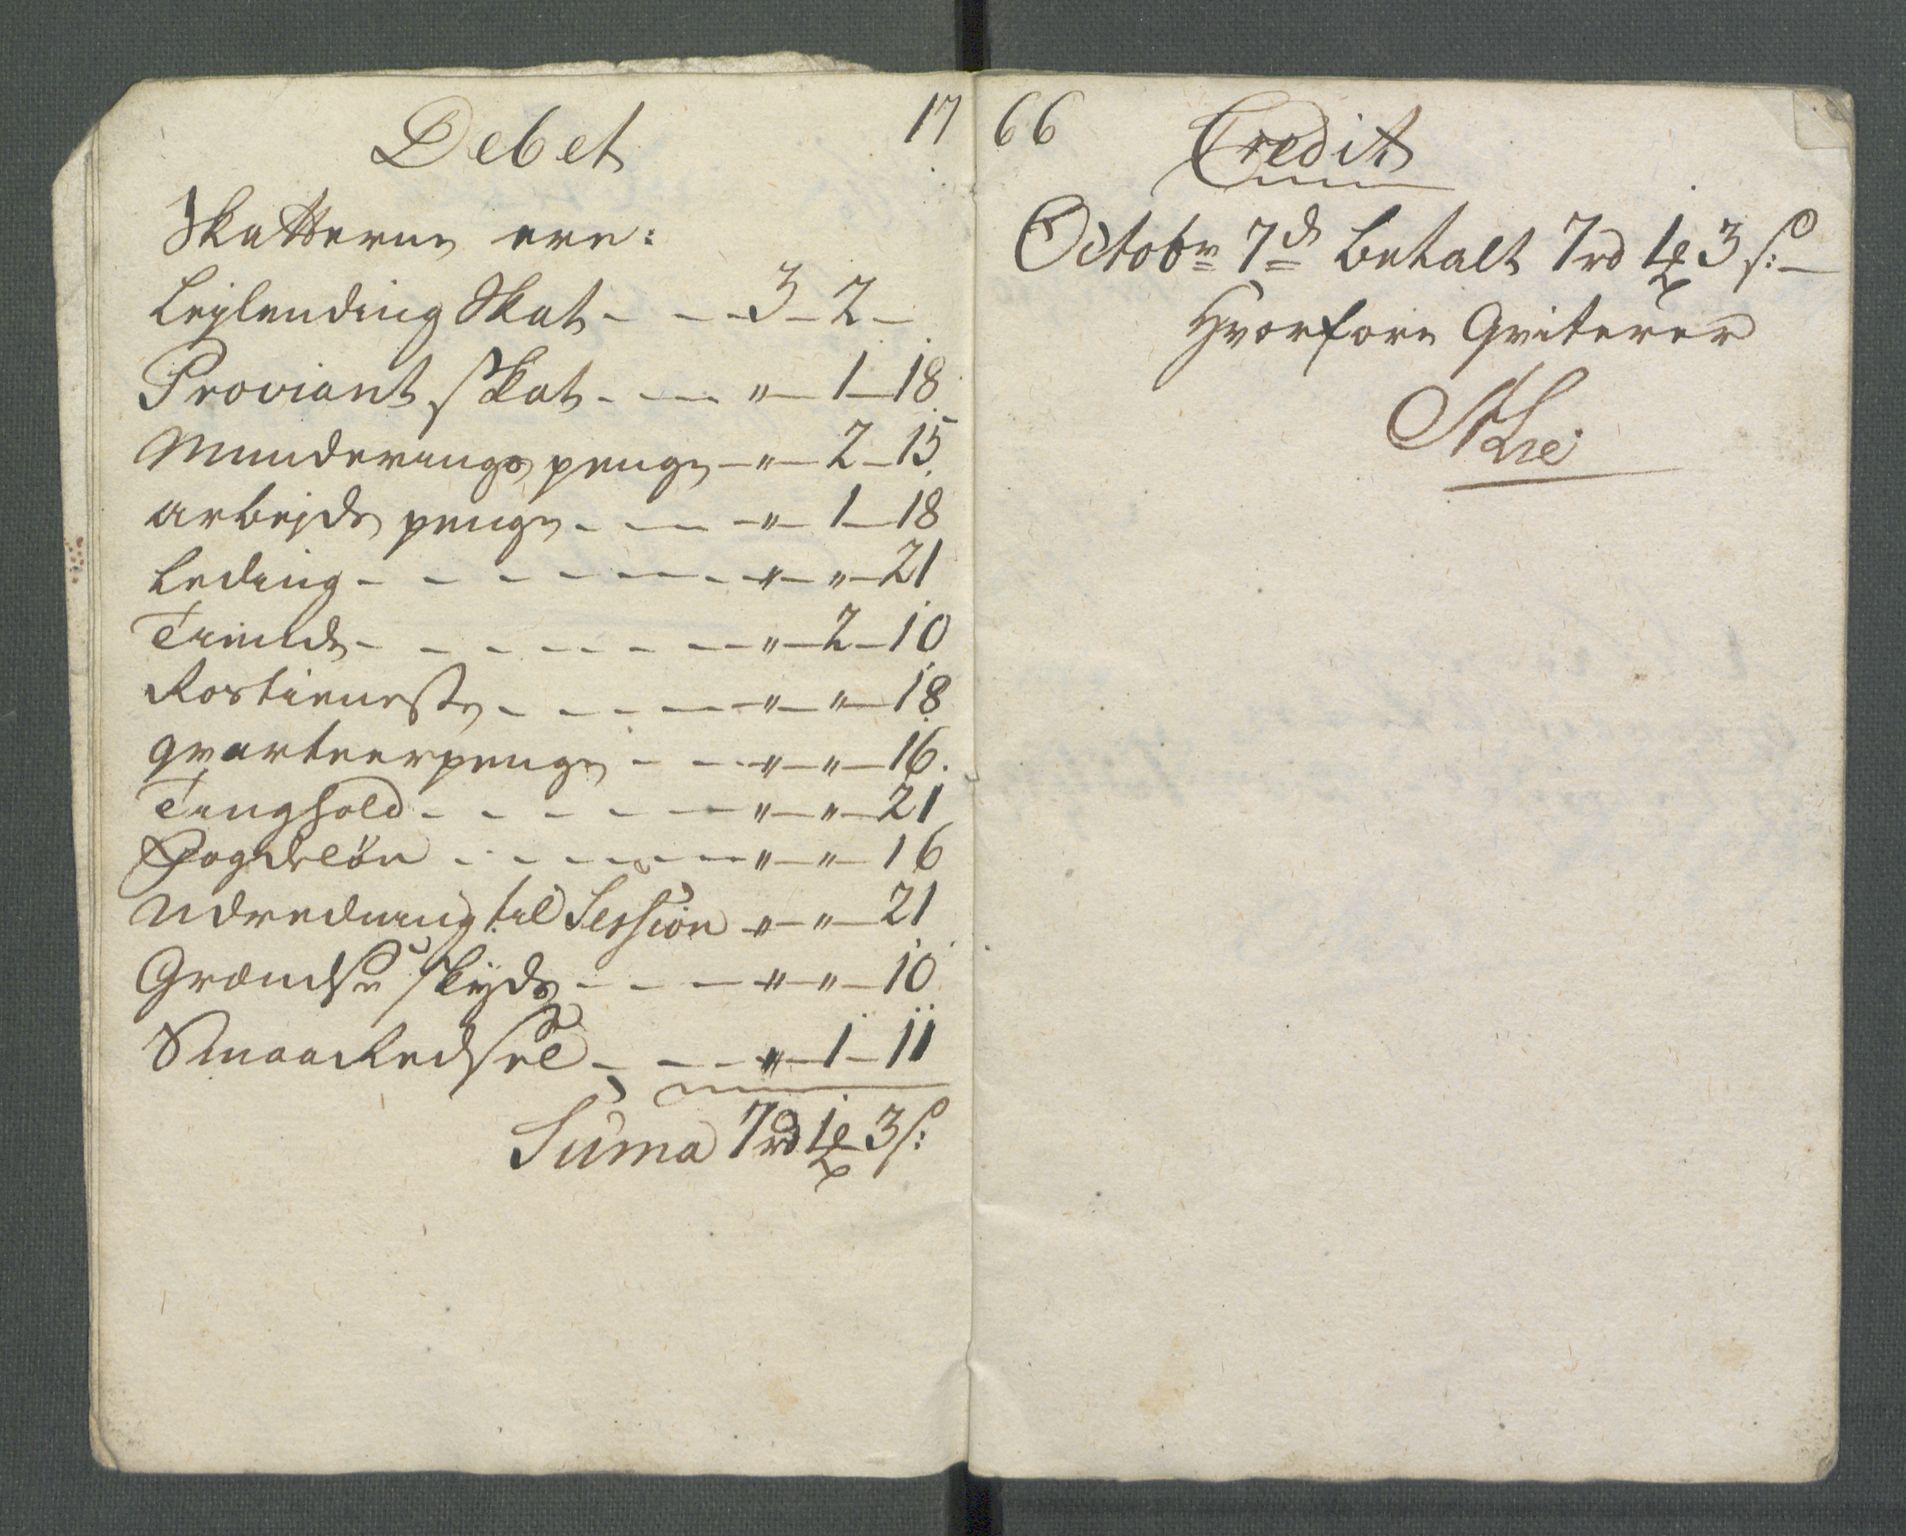 Debet 17
Skatterne ere:
Lejlending Skat - - - 3 - 2 -
Proviant skat - - - " - 1 - 18
Munderings penge - " - 2 - 15
arbejds penge - - - " - 1 - 18
Leding - - - - - - - " - " - 21
Tiende - - - - - - - " - 2 - 10
Rostieneste - - - - " - " - 18
qvarteerpenge - - - " - " - 16
Tinghold - - - - - " - " - 21
Fogdeløn - - - - - " - " - 16
Udredning til Session " - " - 21
Grændse skyds - - - " - " - 10
Smaa Redsel - - - " - 1 - 11
Suma 7rd 1 3 s:
66 Credit
Octobr 7d betalt 7rd 1 3 s: -
Hvorfore Qviterer